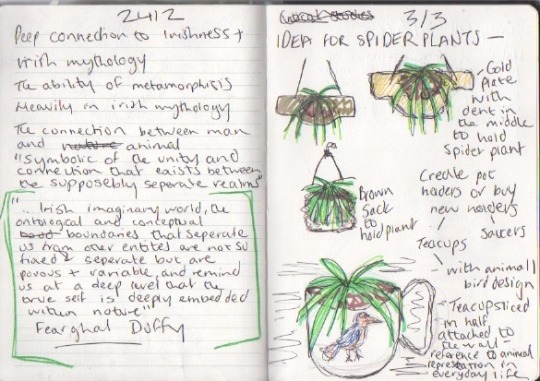 24/2
Deep connection to Irishness +
Irish mythology
The ability of metamorphisis
Heavily in irish mythology
The connection between man
and nature animal
"Symbolic of the unity and
connection that exists between
the supposebly separate realms"
"... Irish imaginary world, the
ontological and conceptual
boundaries that seperate
us from other entites are not so
fixed + seperate but are
porous + variable, and remind
us at a deep level that the
true self is deeply embedded
within nature"
Fearghal Duffy
Critical studies
3/3
IDEA FOR SPIDER PLANTS —
- Gold
plate
with
dent in
the middle
to hold
spider plant
Brown
Sack
to hold plant
Create pot
holders or buy
new holders
Teacups
saucers
with animal/
bird design
- Teacup sliced
in half
attached to
the wall -
reference to animal
representation in
everyday life